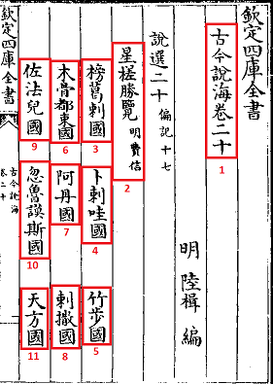 欽定四庫全書
古今說海卷二十
1
明 陸楫 編
說選二十 偏記十七
星槎勝覽 明費信
2
榜葛剌國
3
卜剌哇國
4
竹步國
5
木骨都東國
6
阿丹國
7
剌撒國
8
佐法兒國
9
忽魯謨斯國
10
天方國
11
欽定四庫全書
古今說海
卷二十